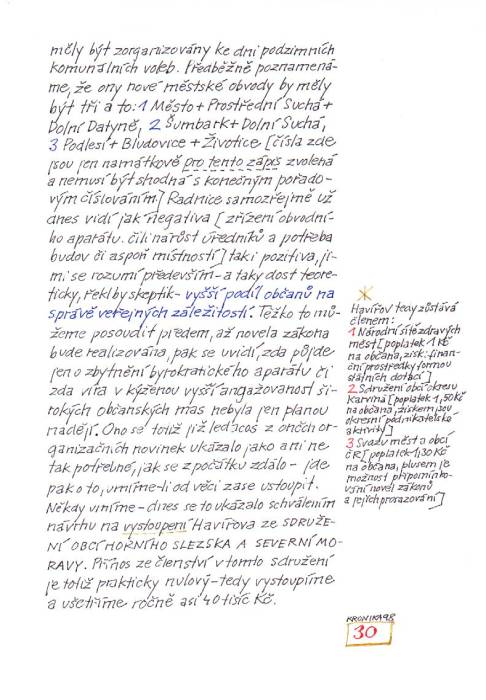 měly být zorganizovány ke dni podzimních
komunálních voleb. Předběžně poznamená-
me, že ony nové městské obvody by měly
být tři a to: 1 Město + Prostřední Suchá +
Dolní Datyně, 2 Šumbark + Dolní Suchá,
3 Podlesí + Bludovice + Životice [čísla zde
jsou jen namátkově pro tento zápis zvolená
a nemusí být shodná s konečným pořado-
vým číslováním] Radnice samozřejmě už
dnes vidí jak negativa [zřízení obvodní-
ho aparátu. čili nárůst úředníků a potřeba
budov či aspoň místností] tak i pozitiva, ji-
mi se rozumí především - a taky dost teore-
ticky, řekl by skeptik - vyšší podíl občanů na
správě veřejných záležitostí. Těžko to mů-
žeme posoudit předem, až novela zákona
bude realizována, pak se uvidí, zda půjde
jen o zbytnění byrokratického aparátu či
zda víra v kýženou vyšší angažovanost ši-
rokých občanských mas nebyla jen planou
nadějí. Ono se totiž již ledacos z oněch or-
ganizačních novinek ukázalo jako ani ne
tak potřebné, jak se zpočátku zdálo - jde
pak o to, umíme-li od věci zase ustoupit.
Někdy umíme - dnes se to ukázalo schválením
návrhu na vystoupení Havířova ze SDRUŽE-
NÍ OBCÍ HORNÍHO SLEZSKA A SEVERNÍ MO-
RAVY. Přínos ze členství v tomto sdružení
je totiž prakticky nulový - tedy vystoupíme
a ušetříme ročně asi 40 tisíc Kč.
Havířov tedy zůstává
členem:
1 Národní sítě zdravých
měst [poplatek 1 Kč
na občana, zisk: finan-
ční prostředky formou
státních dotací]
2 Sdružení obcí okresu
Karviná [poplatek 1,50 Kč
na občana, ziskem jsou
okresní podnikatelské
aktivity]
3 Svazu měst a obcí
ČR [poplatek 1,30 Kč
na občana, plusem je
možnost připomínko-
vání novel zákonů
a jejich prorazování]
KRONIKA 98
30